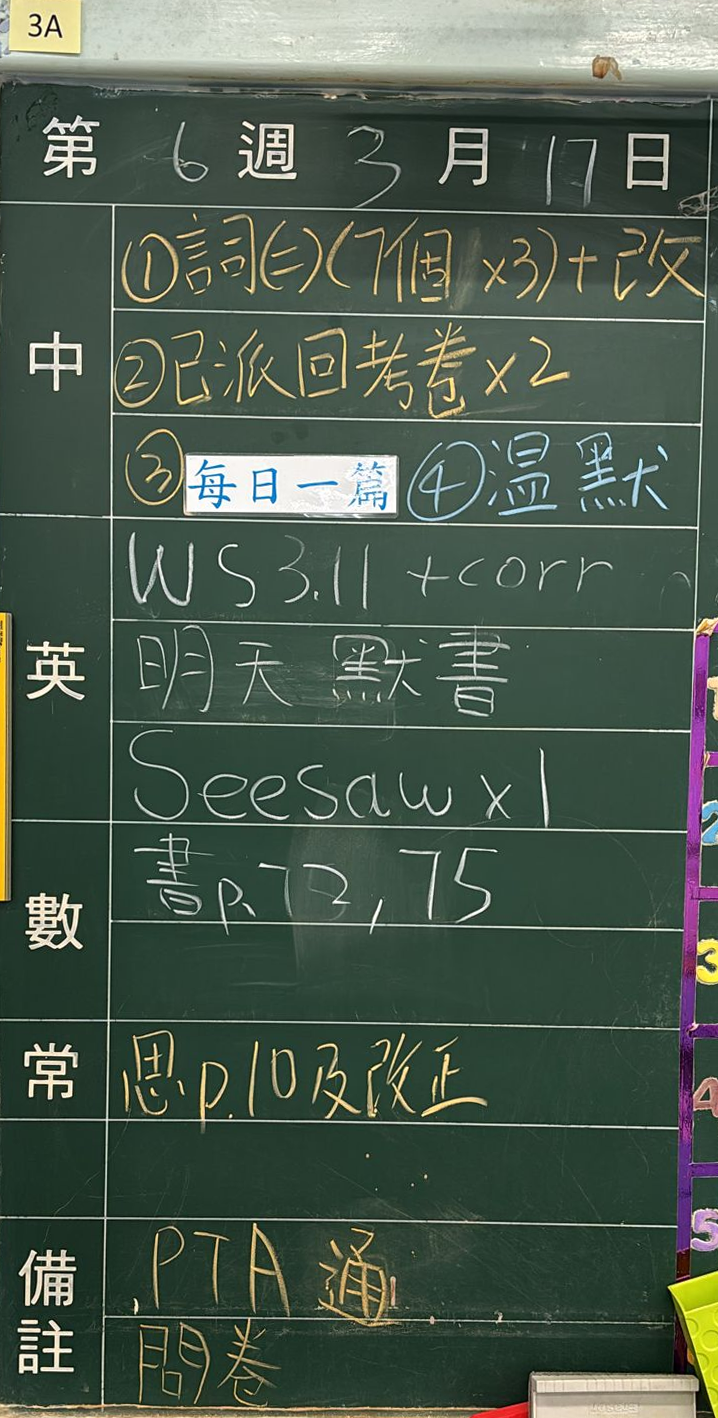 3A
第 6 週 3 月 17 日
中
①詞(二)(7個 x3)+改
②已派回考卷x2
③每日一篇 ④溫默
英
WS 3.11 +corr
明天 默書
Seesaw x1
數
書p.72, 75
常
思p.10及改正
備註
PTA 通
問卷
2
3
4
5